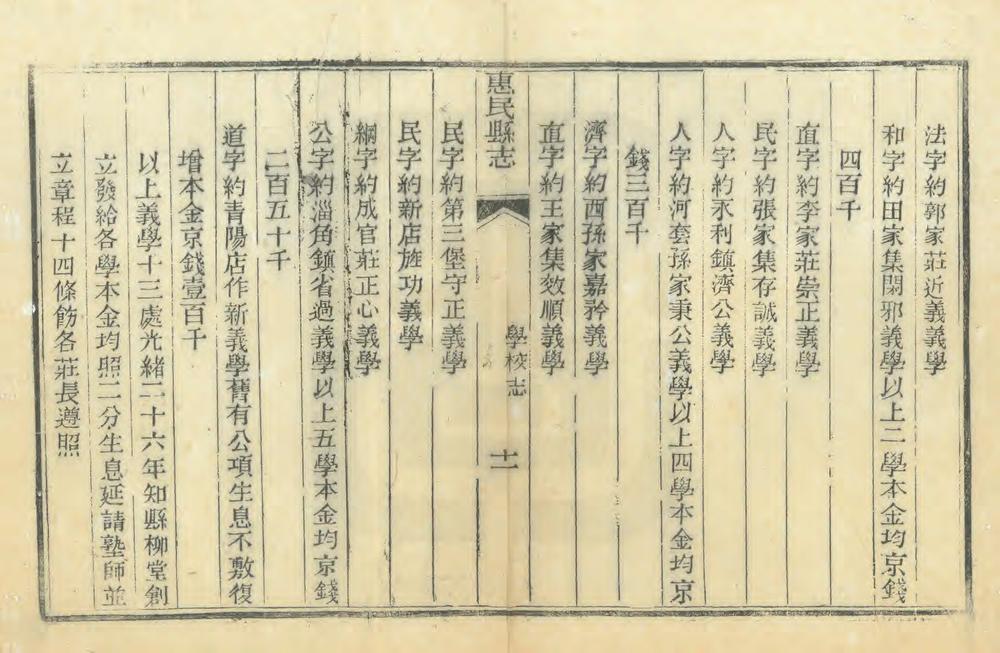 法字約郭家莊近義義學
和字約田家集閑邪義學以上二學本金均京錢
四百千
直字約李家莊崇正義學
民字約張家集存誠義學
人字約永利鎮濟公義學
人字約河套孫家秉公義學以上四學本金均京
錢三百千
濟字約西孫家嘉矜義學
直字約王家集效順義學
惠民縣志
學校志
十一
民字約第三堡守正義學
民字約新店旌功義學
綱字約成官莊正心義學
公字約淄角鎮省過義學以上五學本金均京錢
二百五十千
道字約青陽店作新義學舊有公項生息不敷復
增本金京錢壹百千
以上義學十三處光緒二十六年知縣柳堂創
立發給各學本金均照二分生息延請塾師並
立章程十四條飭各莊長遵照